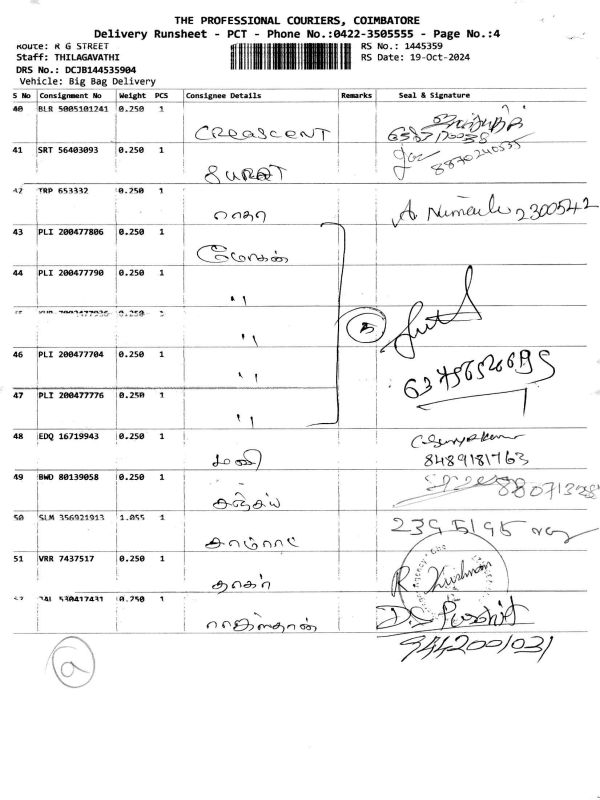 THE PROFESSIONAL COURIERS, COIMBATORE
Delivery Runsheet - PCT - Phone No.:0422-3505555 - Page No.:4
Route: R G STREET RS No.: 1445359
Staff: THILAGAVATHI RS Date: 19-Oct-2024
DRS No.: DCJB144535904
Vehicle: Big Bag Delivery
S No Consignment No Weight PCS Consignee Details Remarks Seal & Signature
40 BLR 5005101241 0.250 1
CREASCENT
41 SRT 56403093 0.250 1
SURAT 8870240535
42 TRP 653332 0.250 1
ராதா 2300542
43 PLI 200477806 0.250 1
மோகன்
44 PLI 200477790 0.250 1
" 
0.250 1
"
46 PLI 200477704 0.250 1
"
47 PLI 200477776 0.250 1
"
48 EDQ 16719943 0.250 1
மணி 8489181763
49 BWD 80139058 0.250 1
சஞ்சய்
50 SLM 356921913 1.055 1
சாம்ராட்
51 VRR 7437517 0.250 1
தாகர் R Krishnan
52 JAL 530417431 0.250 1
ராஜஸ்தான் D.C Purohit
9442001031
a